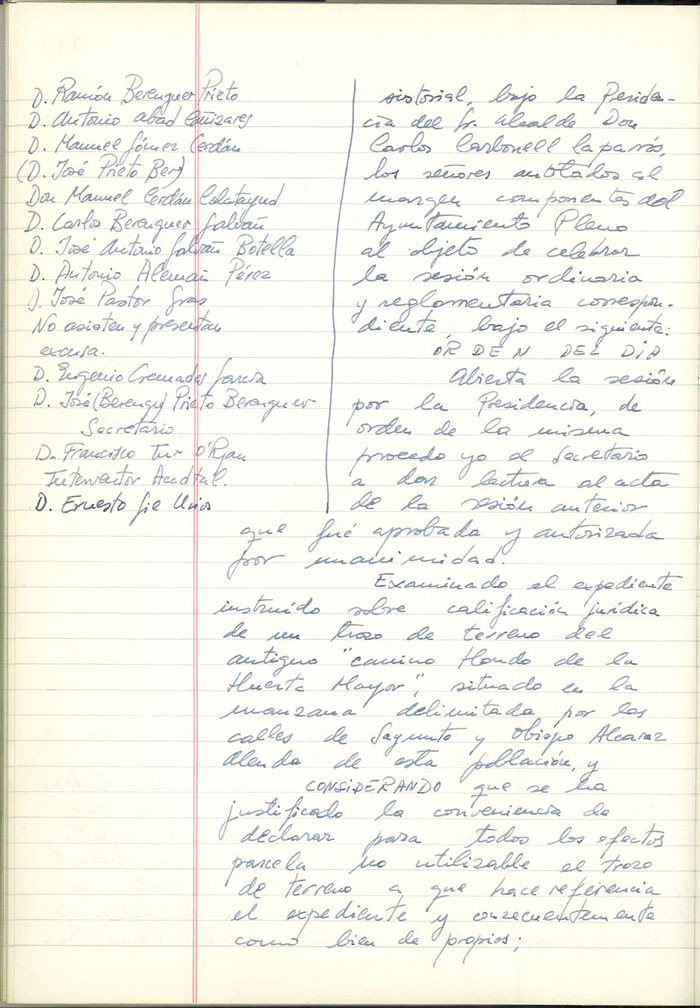 D. Ramón Berenguer Prieto
D. Antonio Abad Cañizares
D. Manuel Gómez Cerdán
(D. José Prieto Ber)
Don Manuel Cerdán Calatayud
D. Carlos Berenguer Galván
D. José Antonio Galván Botella
D. Antonio Alemañ Pérez
D. José Pastor Gras
No asisten y presentan
excusa.
D. Eugenio Cremades García
D. José (Berengu) Prieto Berenguer
Secretario
D. Francisco Tur O'Ryan
Interventor Acctal.
D. Ernesto Gil
sistorial, bajo la Presiden-
cia del Sr. Alcalde Don
Carlos Carbonell Laparrós,
los señores anotados al
margen componentes del
Ayuntamiento Pleno
al objeto de celebrar
la sesión ordinaria
y reglamentaria correspon-
diente, bajo el siguiente:
ÓRDEN DEL DÍA
Abierta la sesión
por la Presidencia, de
orden de la misma
procedo yo el Secretario
a dar lectura al acta
de la sesión anterior
que fué aprobada y autorizada
por unanimidad.
Examinado el expediente
instruido sobre calificación jurídica
de un trozo de terreno del
antiguo "camino Hondo de la
Huerta Mayor", situado en la
manzana delimitada por las
calles de Sagunto y Obispo Alcaraz
Alenda de esta población, y
CONSIDERANDO que se ha
justificado la conveniencia de
declarar para todos los efectos
parcela no utilizable el trozo
de terreno a que hace referencia
el expediente y consecuentemente
como bien de propios;